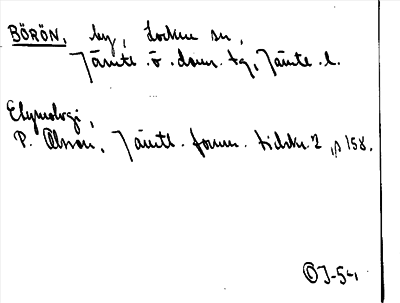 BÖRÖN, by, Lockne sn,
Jämtl. ö. doms. tg, Jämtl. l.
Etymologi,
P. Olsson, Jämtl. fornm. tidskr. 2, p 158.
OJ-54